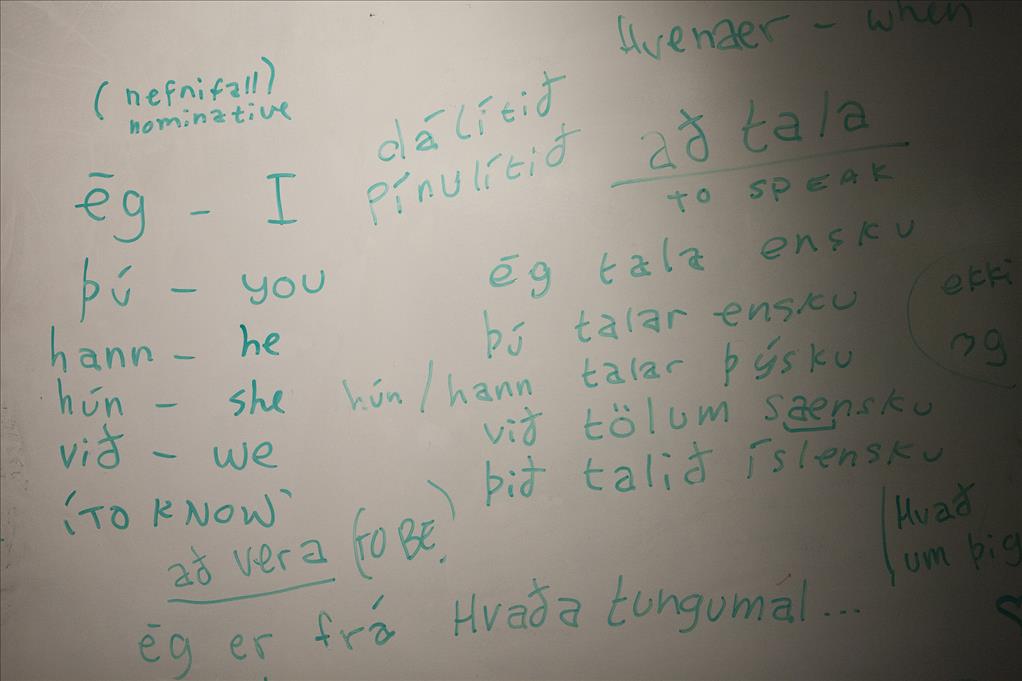 Hvenær – when
(nefnifall)
nominative
dálítið
pínulítið
að tala
TO SPEAK
ēg – I
þú – you
hann – he
hún – she
við – we
ēg tala ensku
þú talar ensku
hún/hann talar þýsku
við tölum saensku
þið talið íslensku
ekki
og
'TO KNOW'
að vera (TO BE)
Hvað
um þig
ēg er frá
Hvaða tungumál...